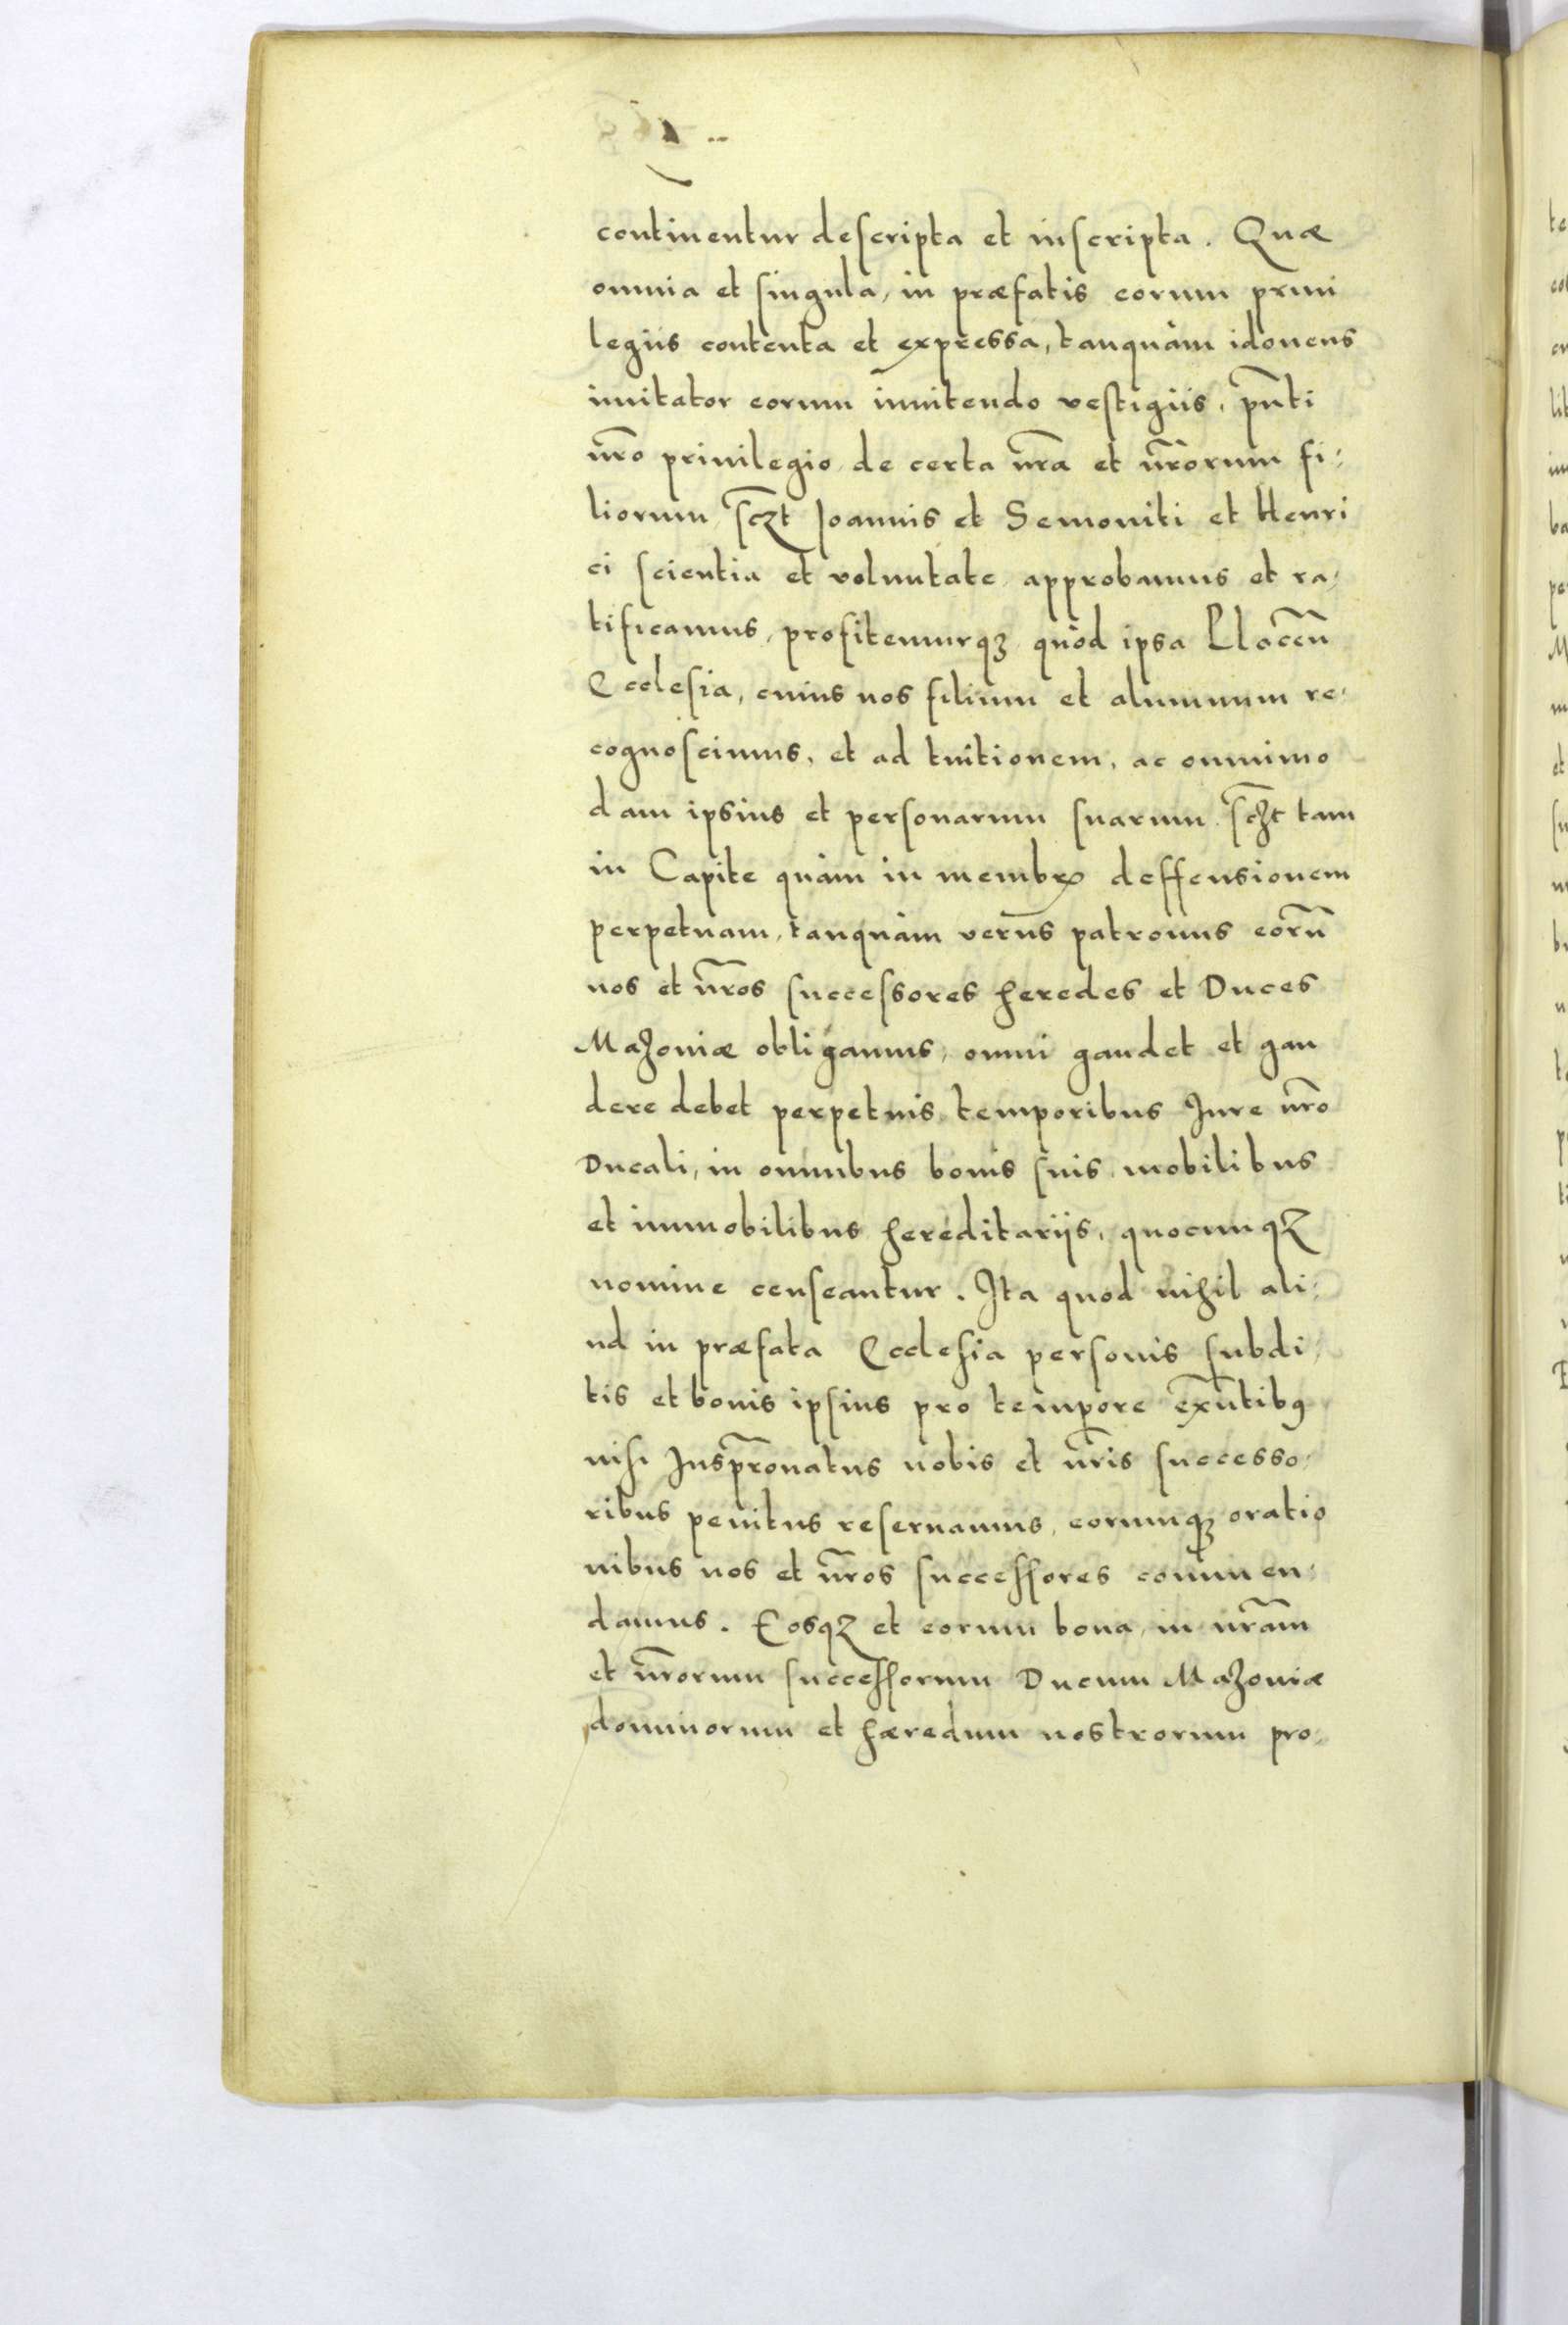 continentur descripta et inscripta. Quæ
omnia et singula, in præfatis eorum priui
legiis contenta et expressa, tanquàm idoneus
imitator eorum innitendo vestigiis, pñti
nr̃o priuilegio de certa nr̃a et nr̃orum fi-
liorum sczt Joannis et Semouiti et Henri
ci scientia et voluntate approbamus et ra-
tificamus, profitemurqz quòd ipsa Plocen̄
Ecclesia, cuius nos filium et alumnum re-
cognoscimus, et ad tuitionem, ac omnimo
dam ipsius et personarum suarum sczt tam
in Capite quàm in membris deffensionem
perpetuam, tanquàm verus patronus eorū
nos et nr̃os successores heredes et Duces
Mazouiæ obligamus, omni gaudet et gau
dere debet perpetuis temporibus Jure nr̃o
Ducali, in omnibus bonis suis mobilibus
et immobilibus hereditariis, quocunqz
nomine censeantur. Ita quod nihil ali-
ud in præfata Ecclesia personis subdi-
tis et bonis ipsius pro tempore exñtibꝰ
nisi Juspr̃onatus nobis et nr̃is successo-
ribus penitus reseruamus, eorumqz oratio
nibus nos et nr̃os successores commen-
damus. Eosqz et eorum bona in nr̃am
et nr̃orum successorum Ducum Mazouiæ
dominorum et hæredum nostrorum pro-